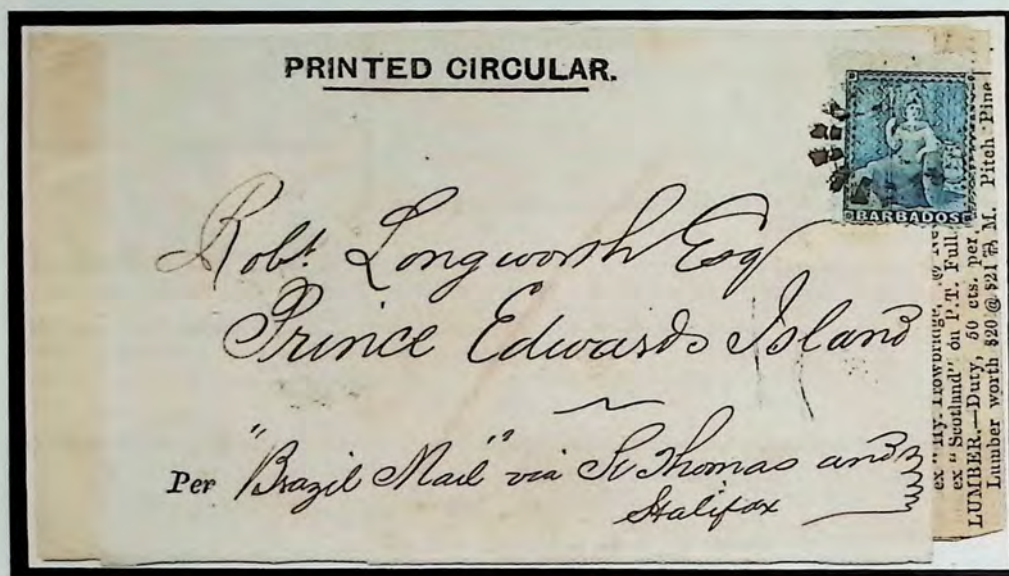 PRINTED CIRCULAR.
BARBADOS
Robt. Longworth Esq
Prince Edwards Island
Per "Brazil Mail" via St Thomas and
Halifax
ex "Hy. Trowbridge,
ex "Scotland" on P.T. Full
LUMBER.—Duty, 50 cts. per M. Pitch Pine
Lumber worth $20 @ $21 ⅌